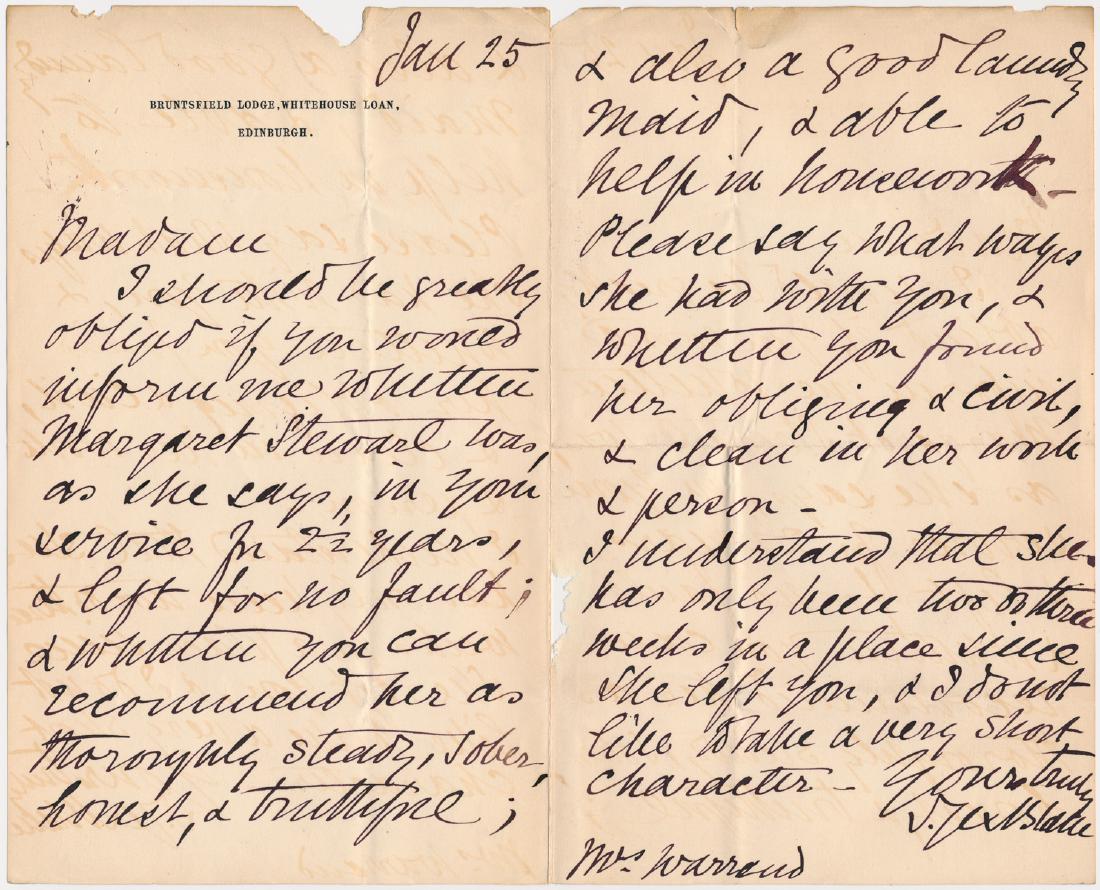 Jan 25
BRUNTSFIELD LODGE, WHITEHOUSE LOAN,
EDINBURGH.
Madam
I should be greatly
obliged if you would
inform me whether
Margaret Stewart was,
as she says, in your
service for 2½ years,
& left for no fault;
& whether you can
recommend her as
thoroughly steady, sober,
honest, & truthful;
& also a good laundry
maid, & able to
help in housework –
Please say what wages
she had with you, &
whether you found
her obliging & civil,
& clean in her work
& person –
I understand that she
has only been two or three
weeks in a place since
she left you, & I do not
like to take a very short
character – Yours truly
S. Jex-Blake
Mrs Warrand